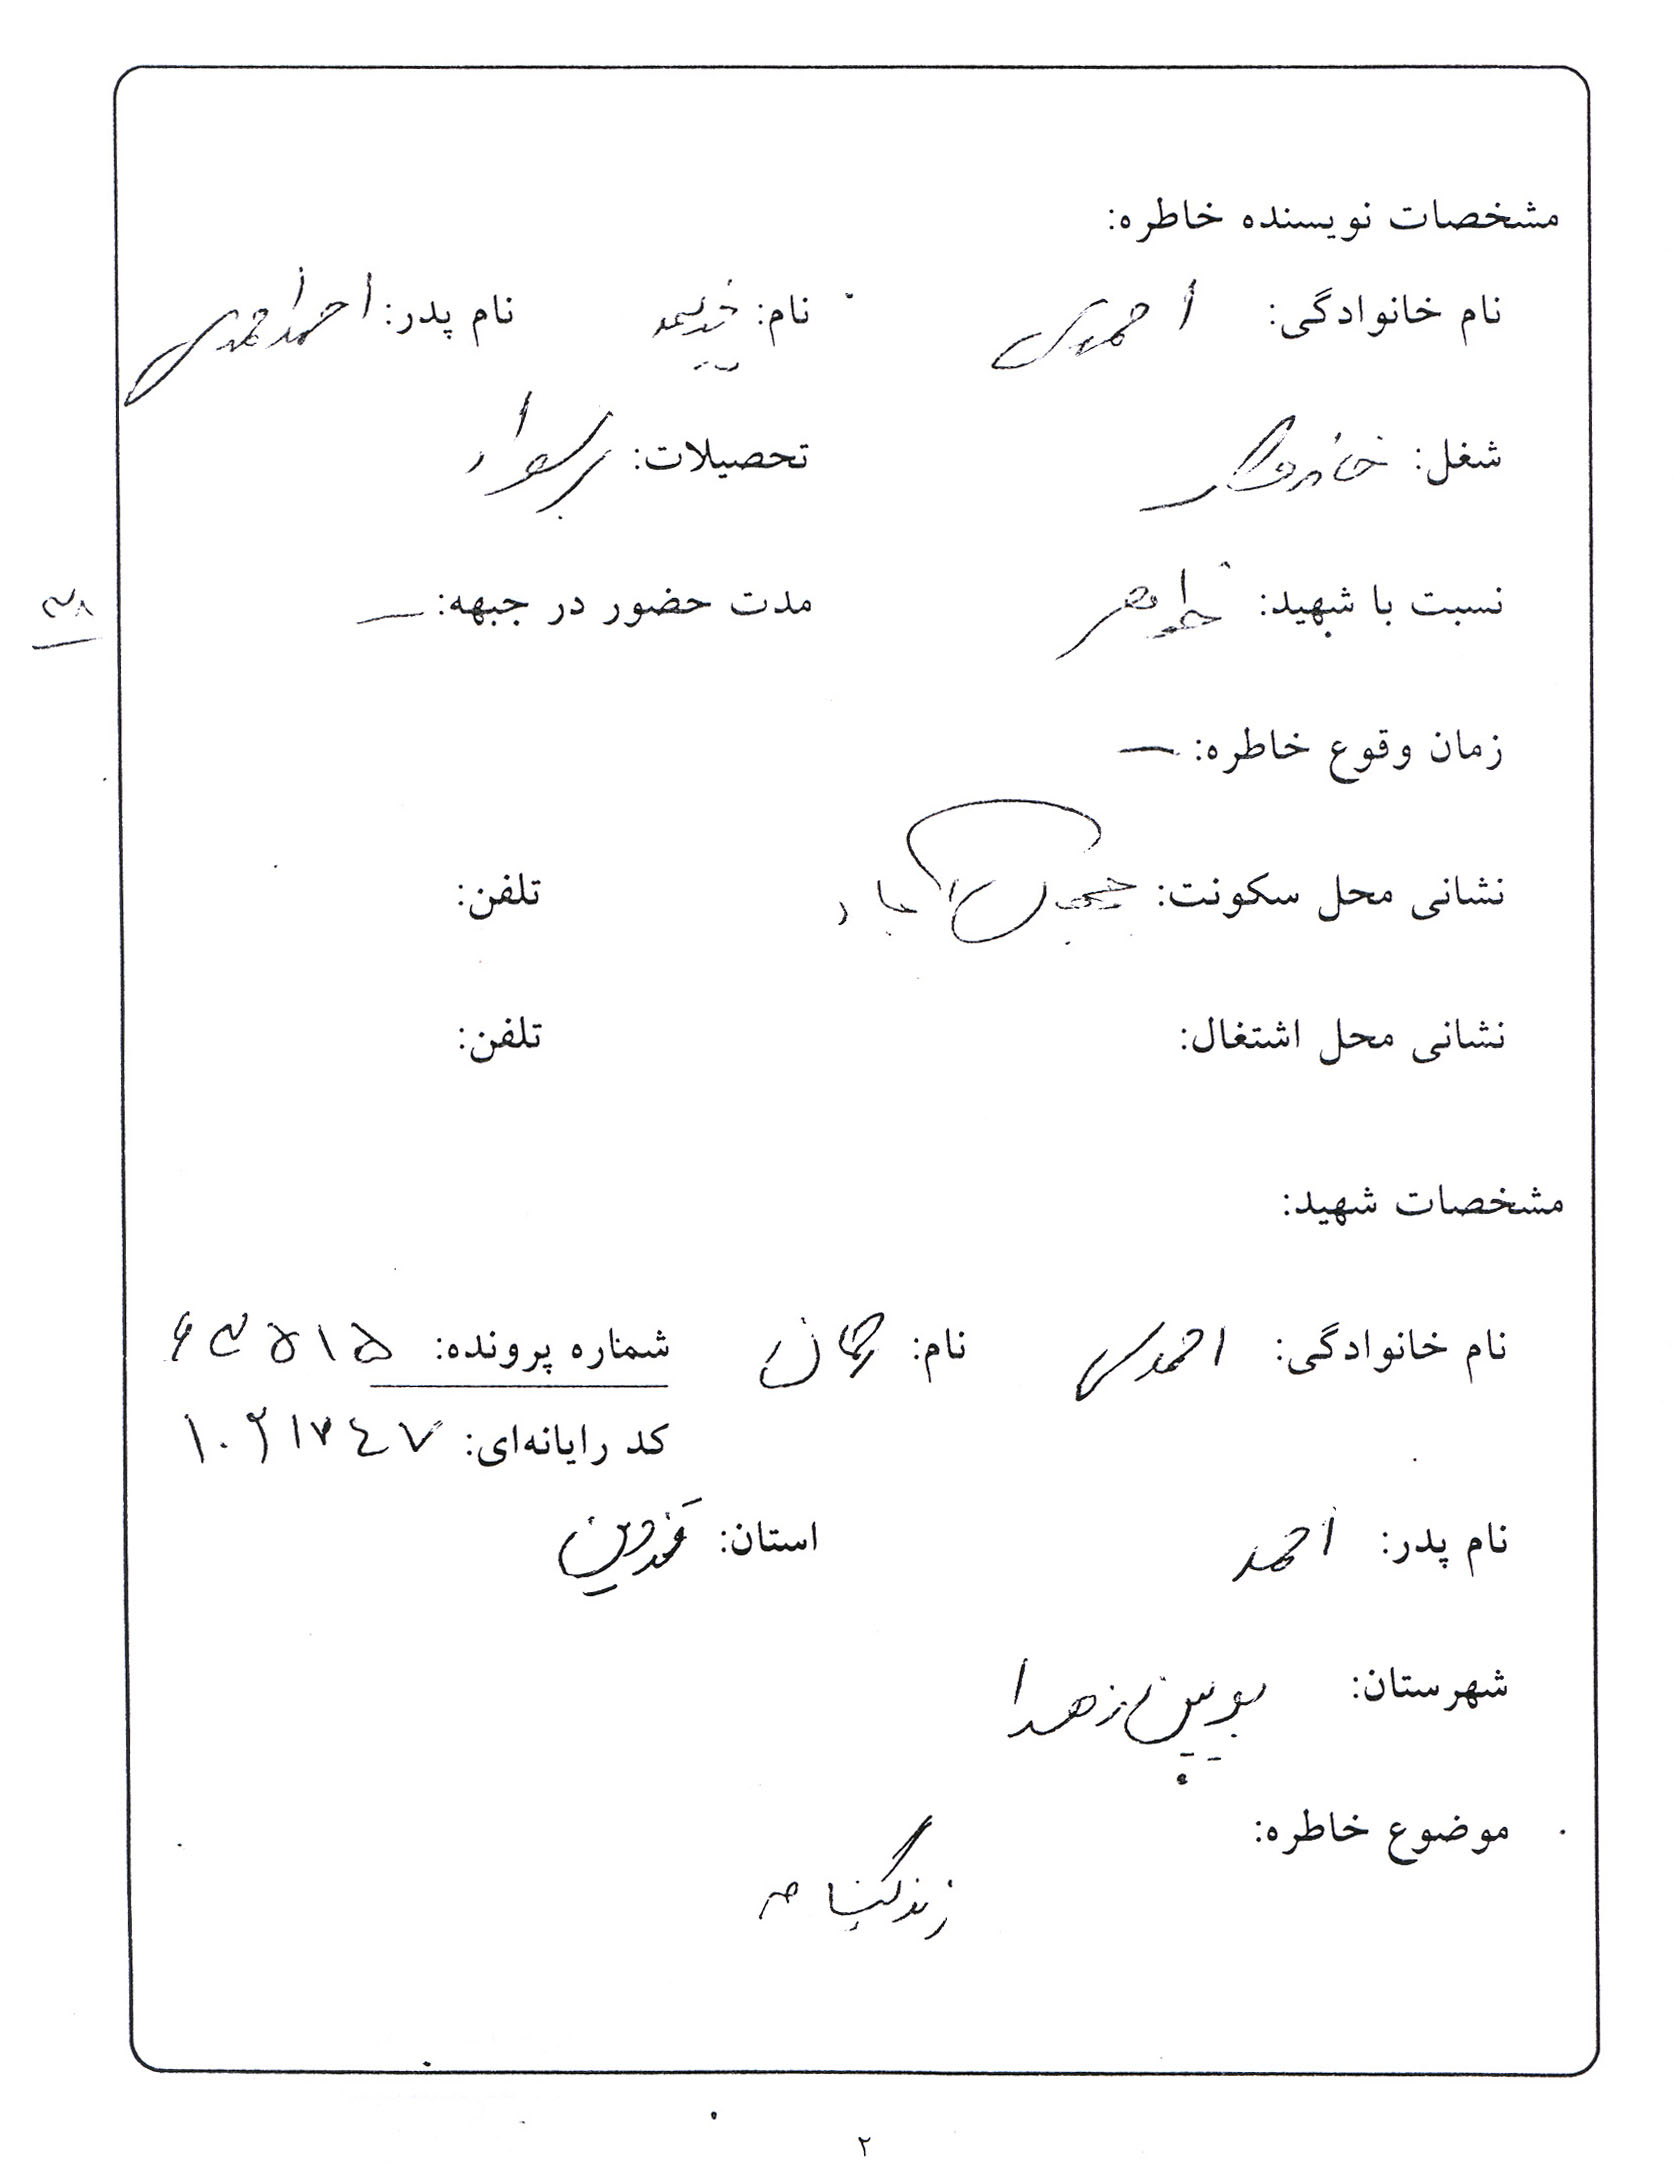 مشخصات نویسنده خاطره:
نام خانوادگی: احمدی نام: خدیجه نام پدر: احمد احمدی
شغل: خانه‌دار تحصیلات: بیسواد
نسبت با شهید: خواهر مدت حضور در جبهه: —
۳۸
زمان وقوع خاطره: —
نشانی محل سکونت: تلفن:
نشانی محل اشتغال: تلفن:
مشخصات شهید:
نام خانوادگی: احمدی نام: شماره پرونده: ۶۳۵۱۵
کد رایانه‌ای: ۱۰۲۱۷۴۷
نام پدر: احمد استان: قزوین
شهرستان: بویین زهرا
موضوع خاطره:
زندگینامه
۲